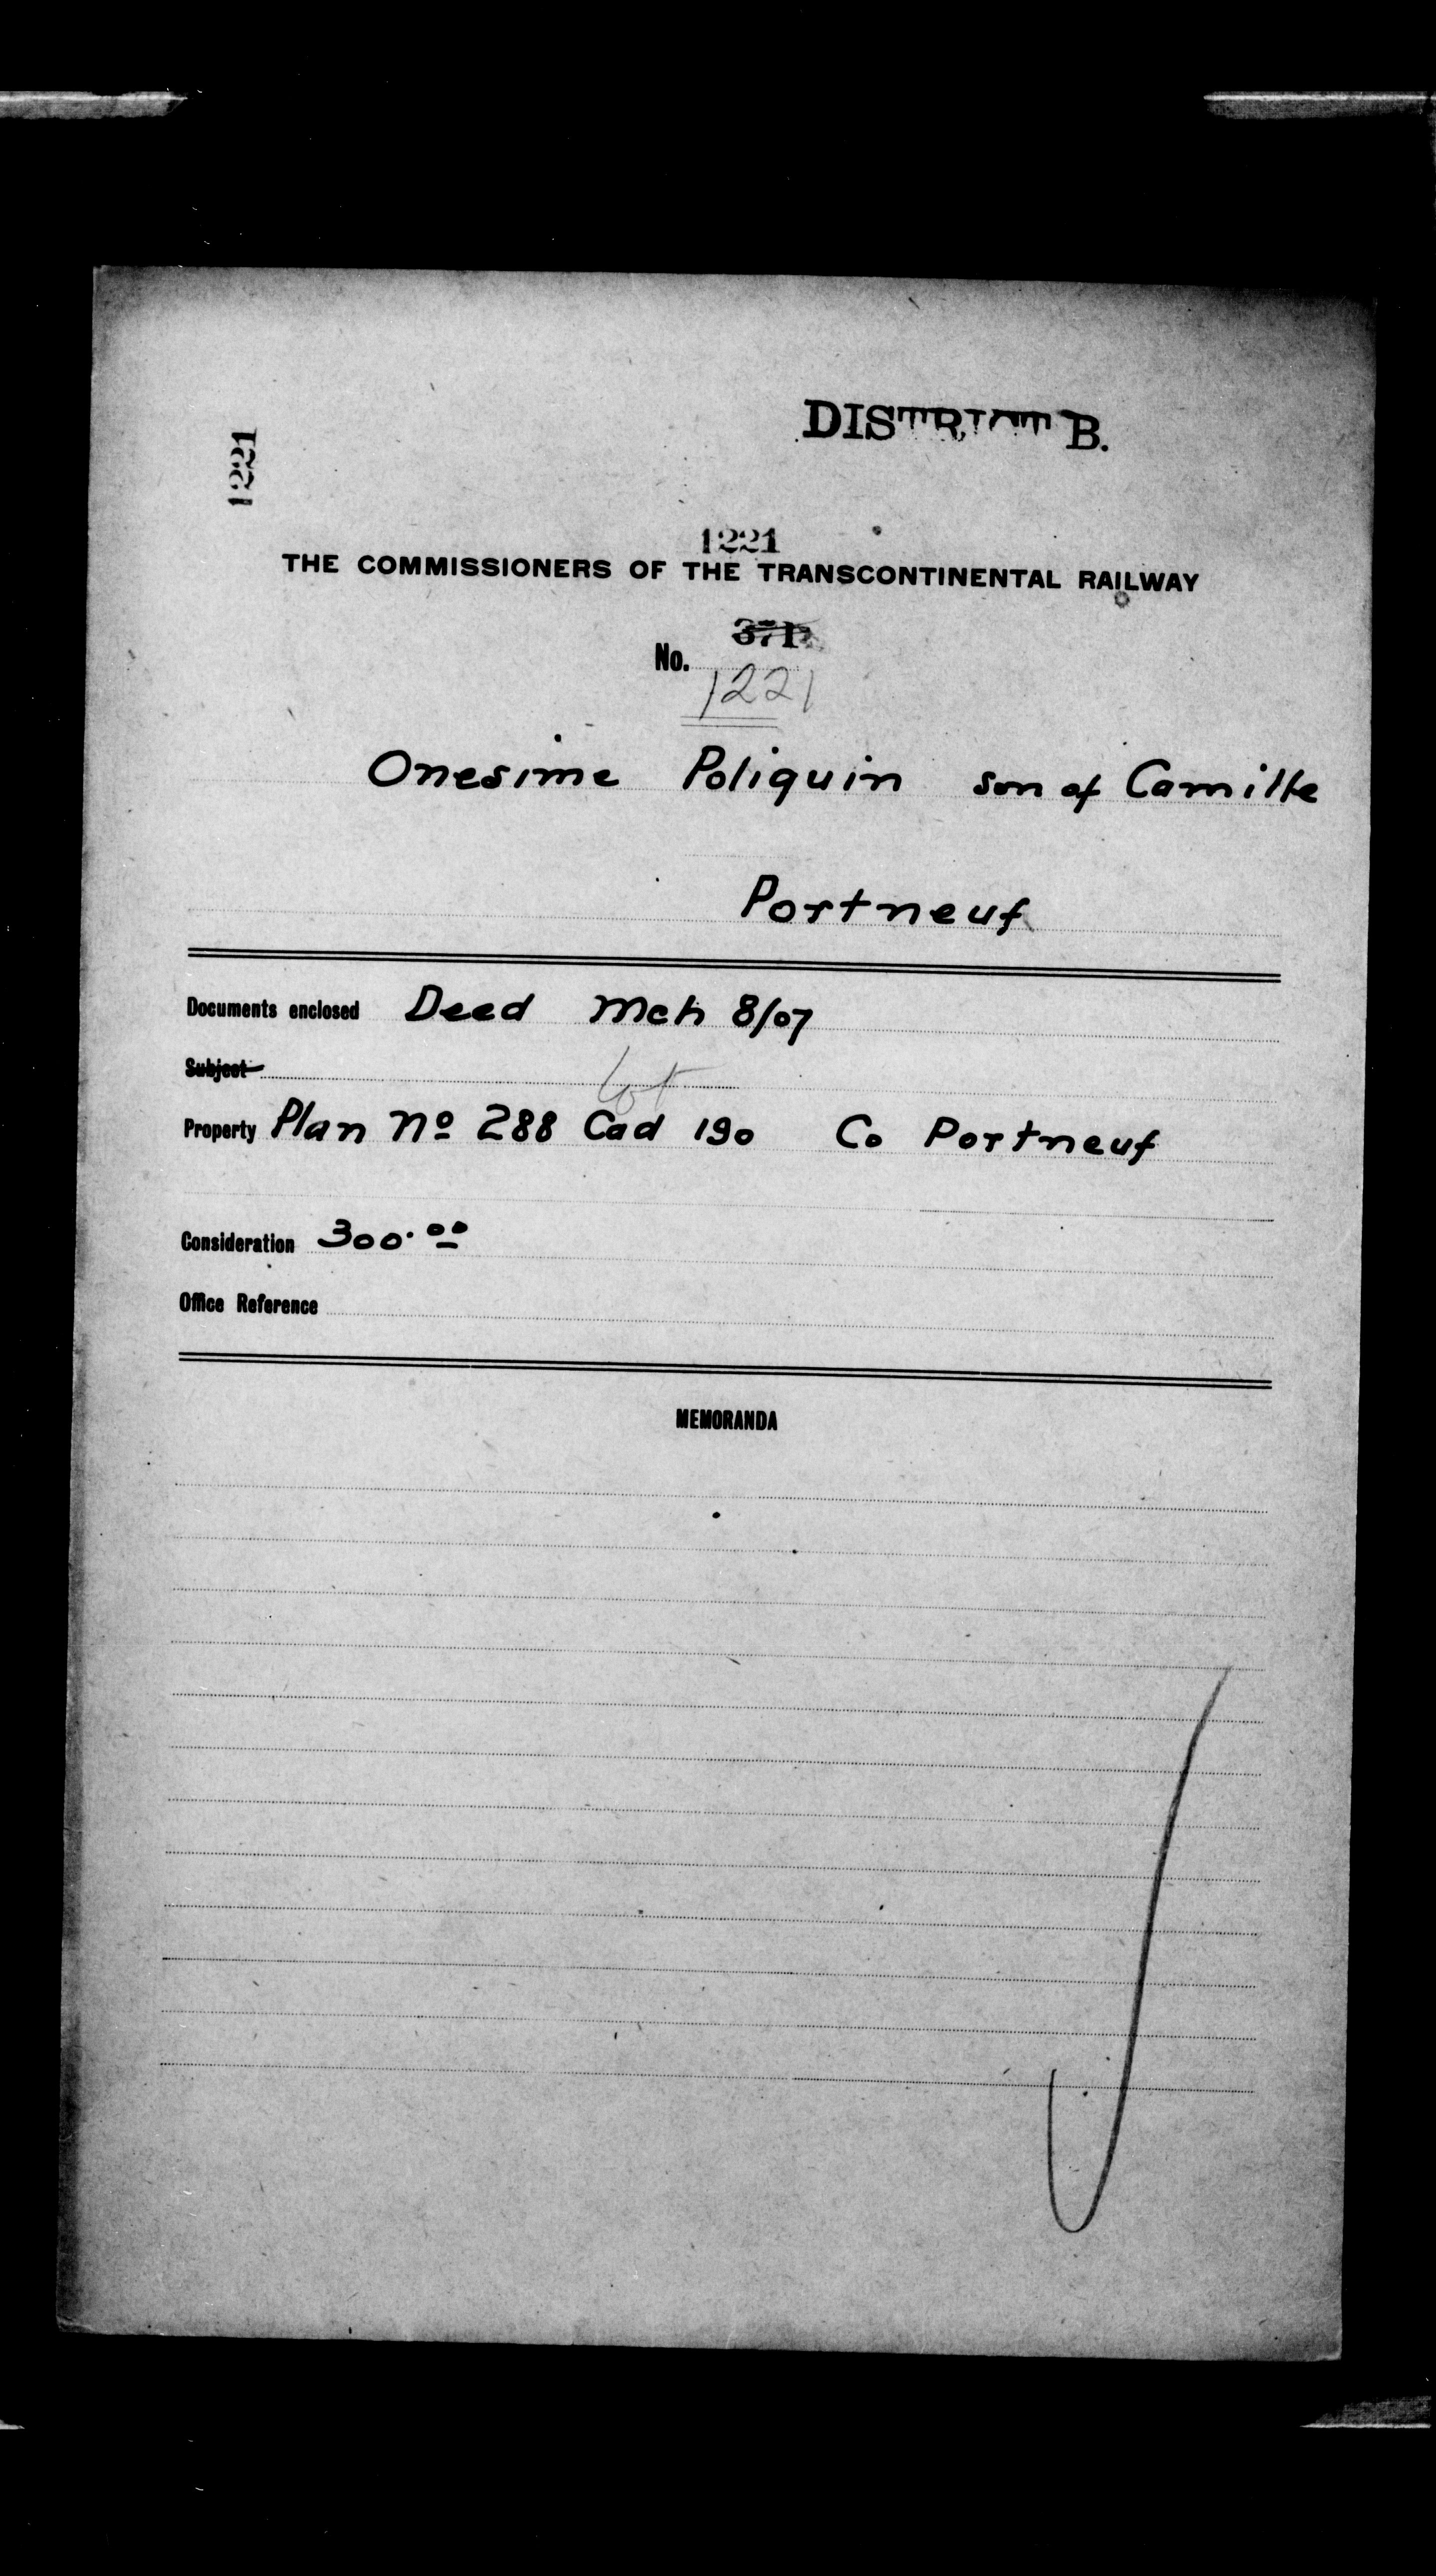 DISTRICT B.
1221
1221
THE COMMISSIONERS OF THE TRANSCONTINENTAL RAILWAY
371
No.
1221
Onesime Poliquin son of Camille
Portneuf
Documents enclosed Deed Mch 8/07
Subject
Lot
Property Plan No 288 Cad 190 Co Portneuf
Consideration 300.00
Office Reference
MEMORANDA